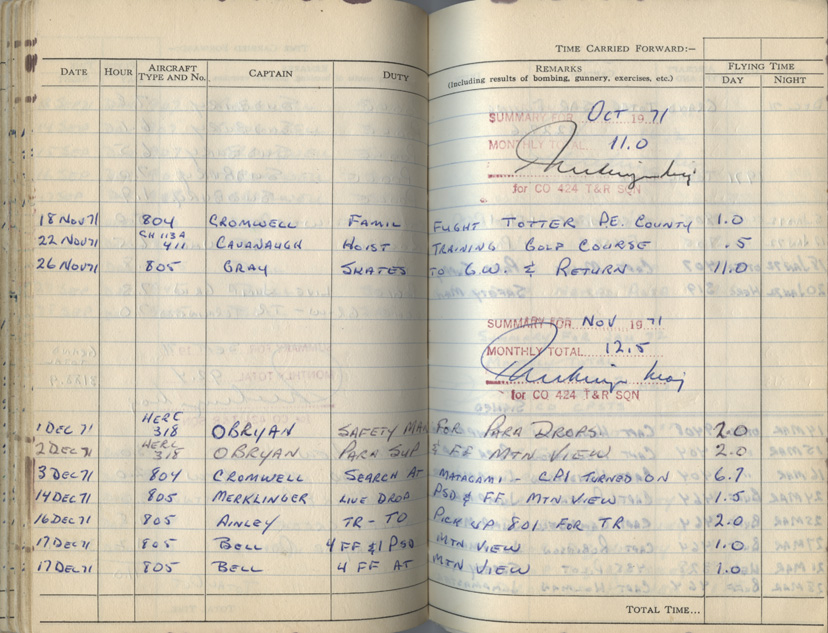 TIME CARRIED FORWARD:—
DATE HOUR AIRCRAFT TYPE AND No. CAPTAIN DUTY REMARKS (Including results of bombing, gunnery, exercises, etc.) FLYING TIME DAY NIGHT
SUMMARY FOR OCT 1971
MONTHLY TOTAL 11.0
for CO 424 T&R SQN
18 NOV 71 804 CROMWELL FAMIL FLIGHT TOTTER P.E. COUNTY 1.0
22 NOV 71 CH 113A 411 CAVANAUGH HOIST TRAINING GOLF COURSE .5
26 NOV 71 805 GRAY SKATES TO G.W. & RETURN 11.0
SUMMARY FOR NOV 1971
MONTHLY TOTAL 12.5
for CO 424 T&R SQN
1 DEC 71 HERC 318 OBRYAN SAFETY MAN FOR PARA DROPS 2.0
2 DEC 71 HERC 318 OBRYAN PARA SUP & FF MTN VIEW 2.0
3 DEC 71 804 CROMWELL SEARCH AT MATAGAMI - CPI TURNED ON 6.7
14 DEC 71 805 MERKLINGER LIVE DROP PSD & FF MTN VIEW 1.5
16 DEC 71 805 AINLEY TR - TO PICK UP 801 FOR TR 2.0
17 DEC 71 805 BELL 4 FF & 1 PSD MTN VIEW 1.0
17 DEC 71 805 BELL 4 FF AT MTN VIEW 1.0
TOTAL TIME...